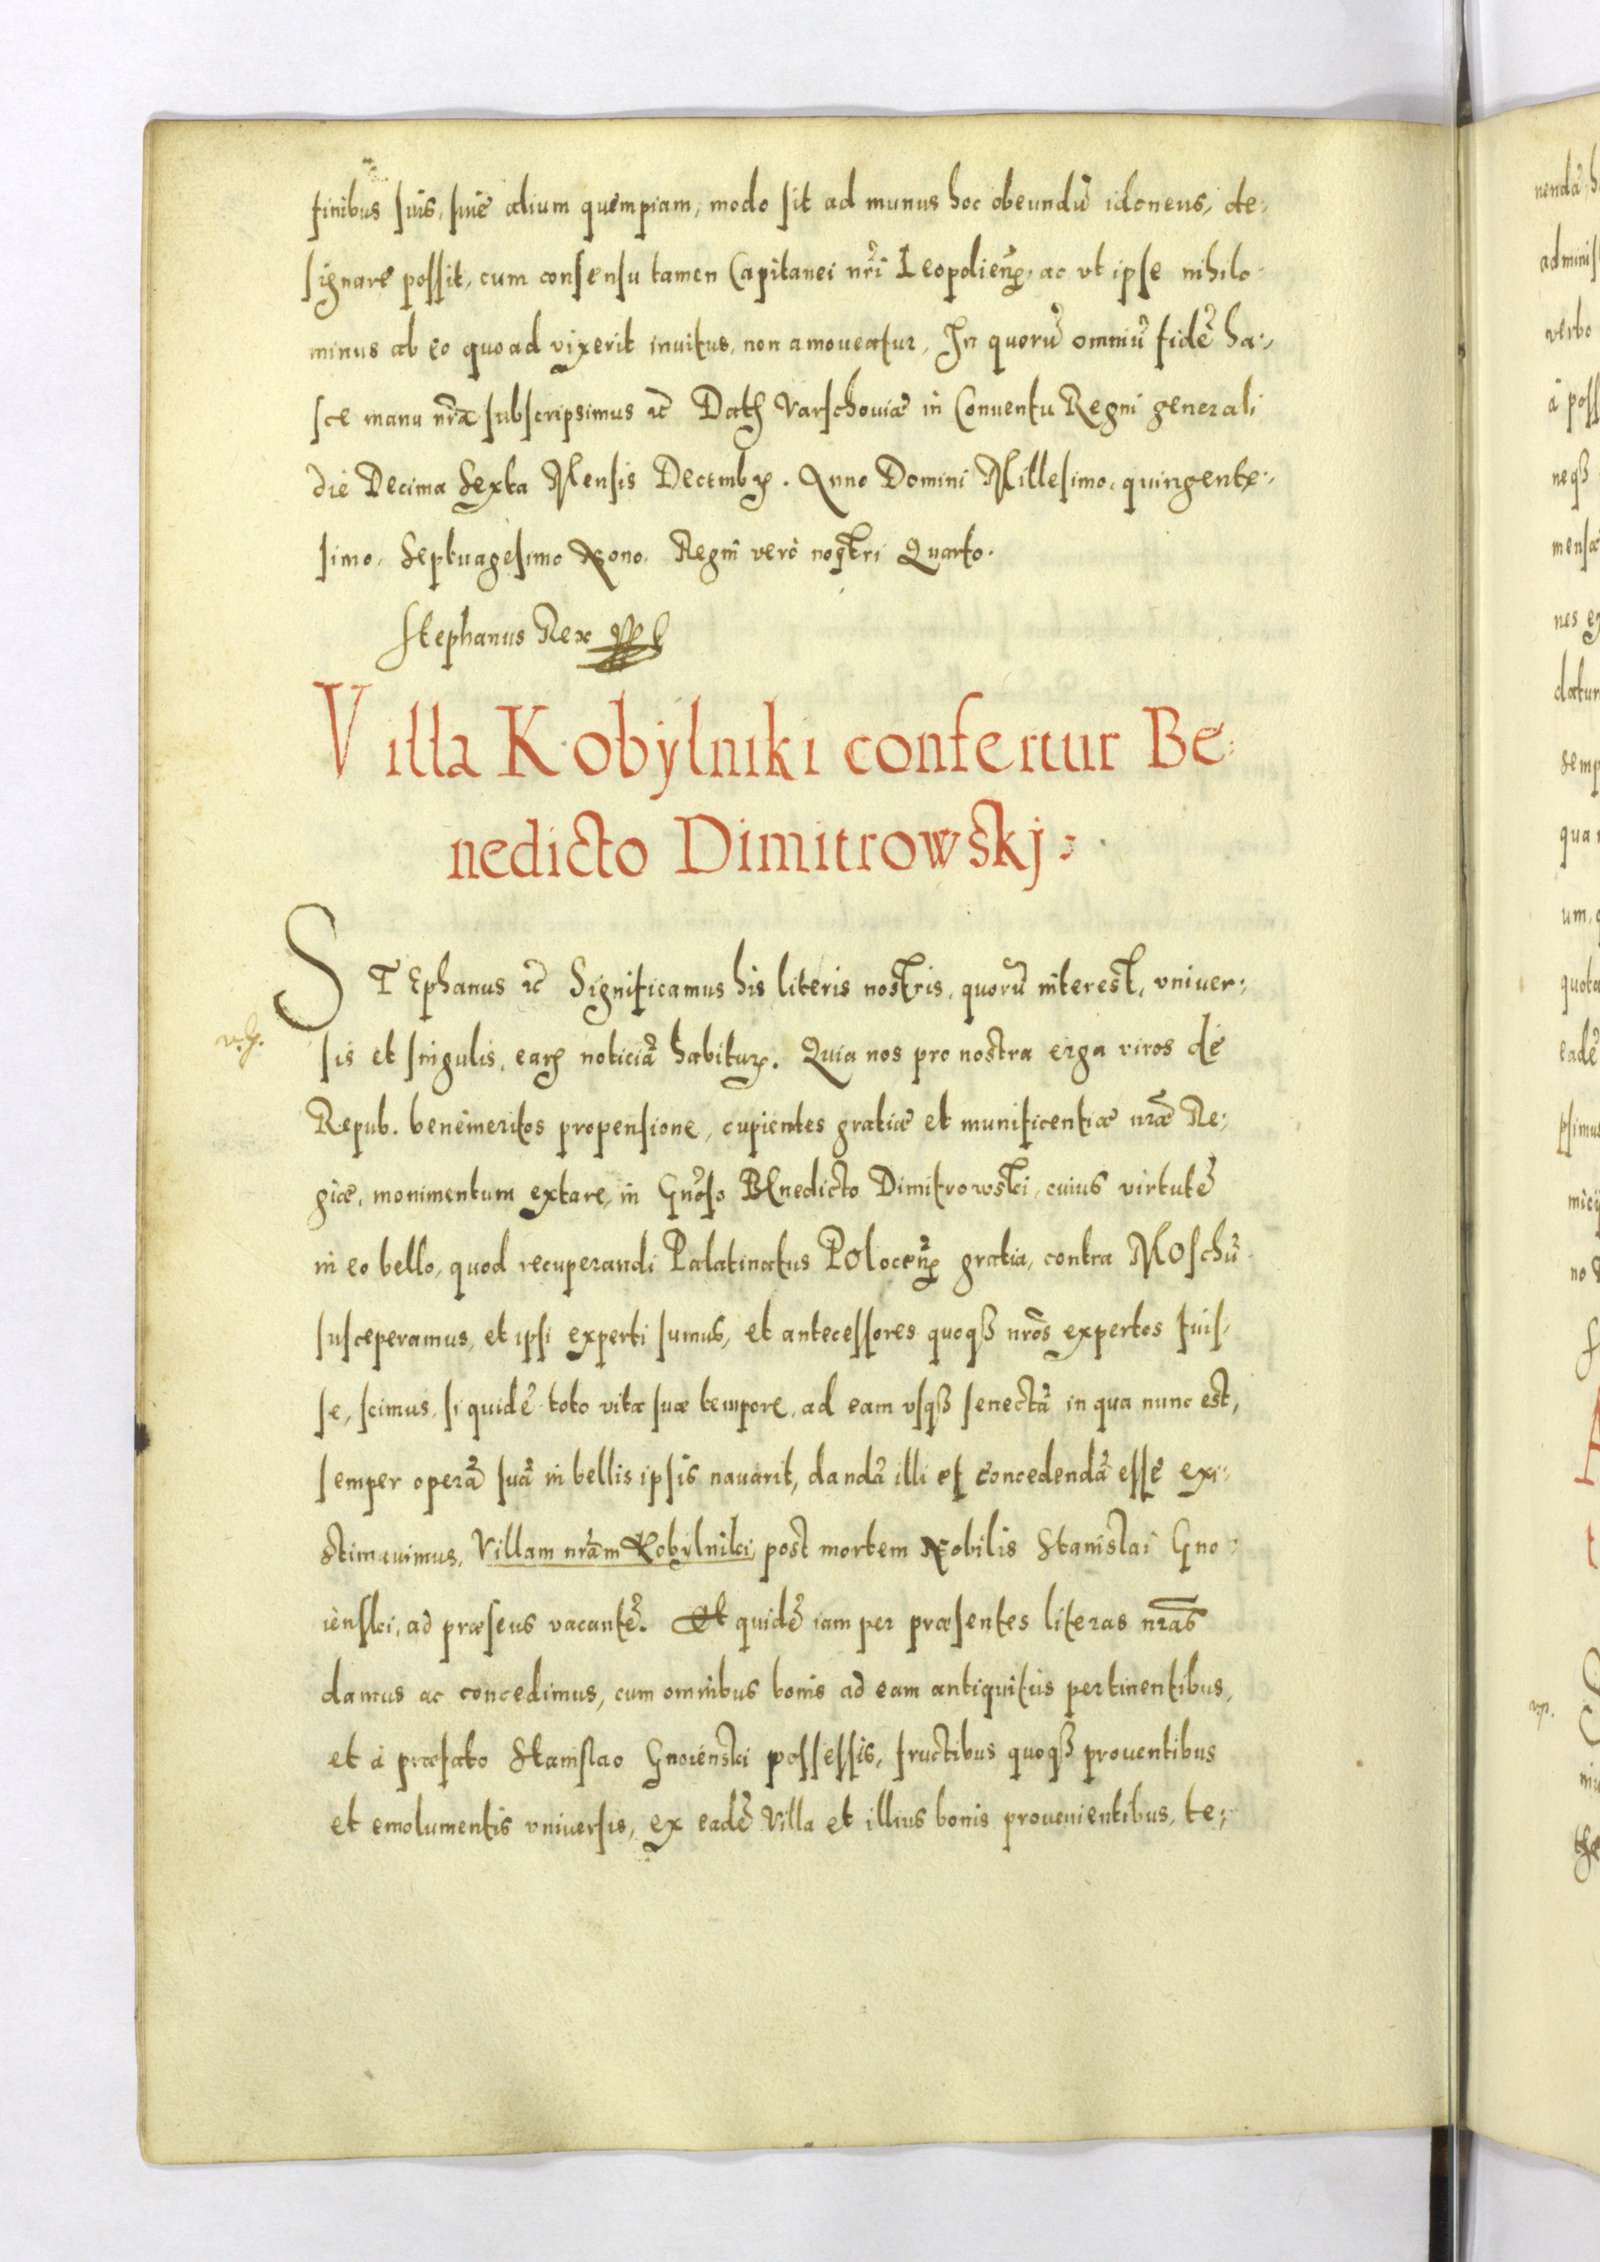 finibus suis, siue alium quempiam, modo sit ad munus hoc obeundũ idoneus, de:
signare possit, cum consensu tamen Capitanei nr̃i Leopolien̄ꝭ, ac vt ipse nihilo:
minus ab eo quoad vixerit inuitus, non amoueatur, In quorũ omniũ fidẽ ha:
sce manu nr̃a subscripsimus ꝛc̃ Datꝭ Varschouiæ in Conuentu Regni generali
die Decima Sexta Mensis Decembꝭ. Anno Domini Millesimo, quingente:
simo, Septuagesimo Nono. Regni verò nostri Quarto.
Stephanus Rex
Villa Kobylniki confertur Be:
nedicto Dimitrowskj:
STEphanus ꝛc̃ Significamus his literis nostris, quorũ interest, vniuer:
sis et singulis, earꝭ noticiã habiturꝭ. Quia nos pro nostra erga viros de
Repub. benemeritos propensione, cupientes gratiæ et munificentiæ nr̃æ Re:
giæ, monimentum extare, in Gnõso BEnedicto Dimitrowski, cuius virtutẽ
in eo bello, quod recuperandi Palatinatus POlocen̄ꝭ gratia, contra MOschũ
susceperamus, et ipsi experti sumus, et antecessores quoqß nrõs expertos fuis:
se, scimus, siquidẽ toto vitæ suæ tempore, ad eam vsqß senectã in qua nunc est,
semper operã suã in bellis ipsis nauarit, dandã illi et concedendã esse exi:
stimauimus, Villam nr̃am Kobylniki, post mortem Nobilis Stanislai Gno:
ienski, ad præsens vacantẽ. Et quidẽ iam per præsentes literas nrãs
damus ac concedimus, cum omnibus bonis ad eam antiquitùs pertinentibus,
et à præfato Stanislao Gnoienski possessis, fructibus quoqß prouentibus
et emolumentis vniuersis, ex eadẽ Villa et illius bonis prouenientibus, te: